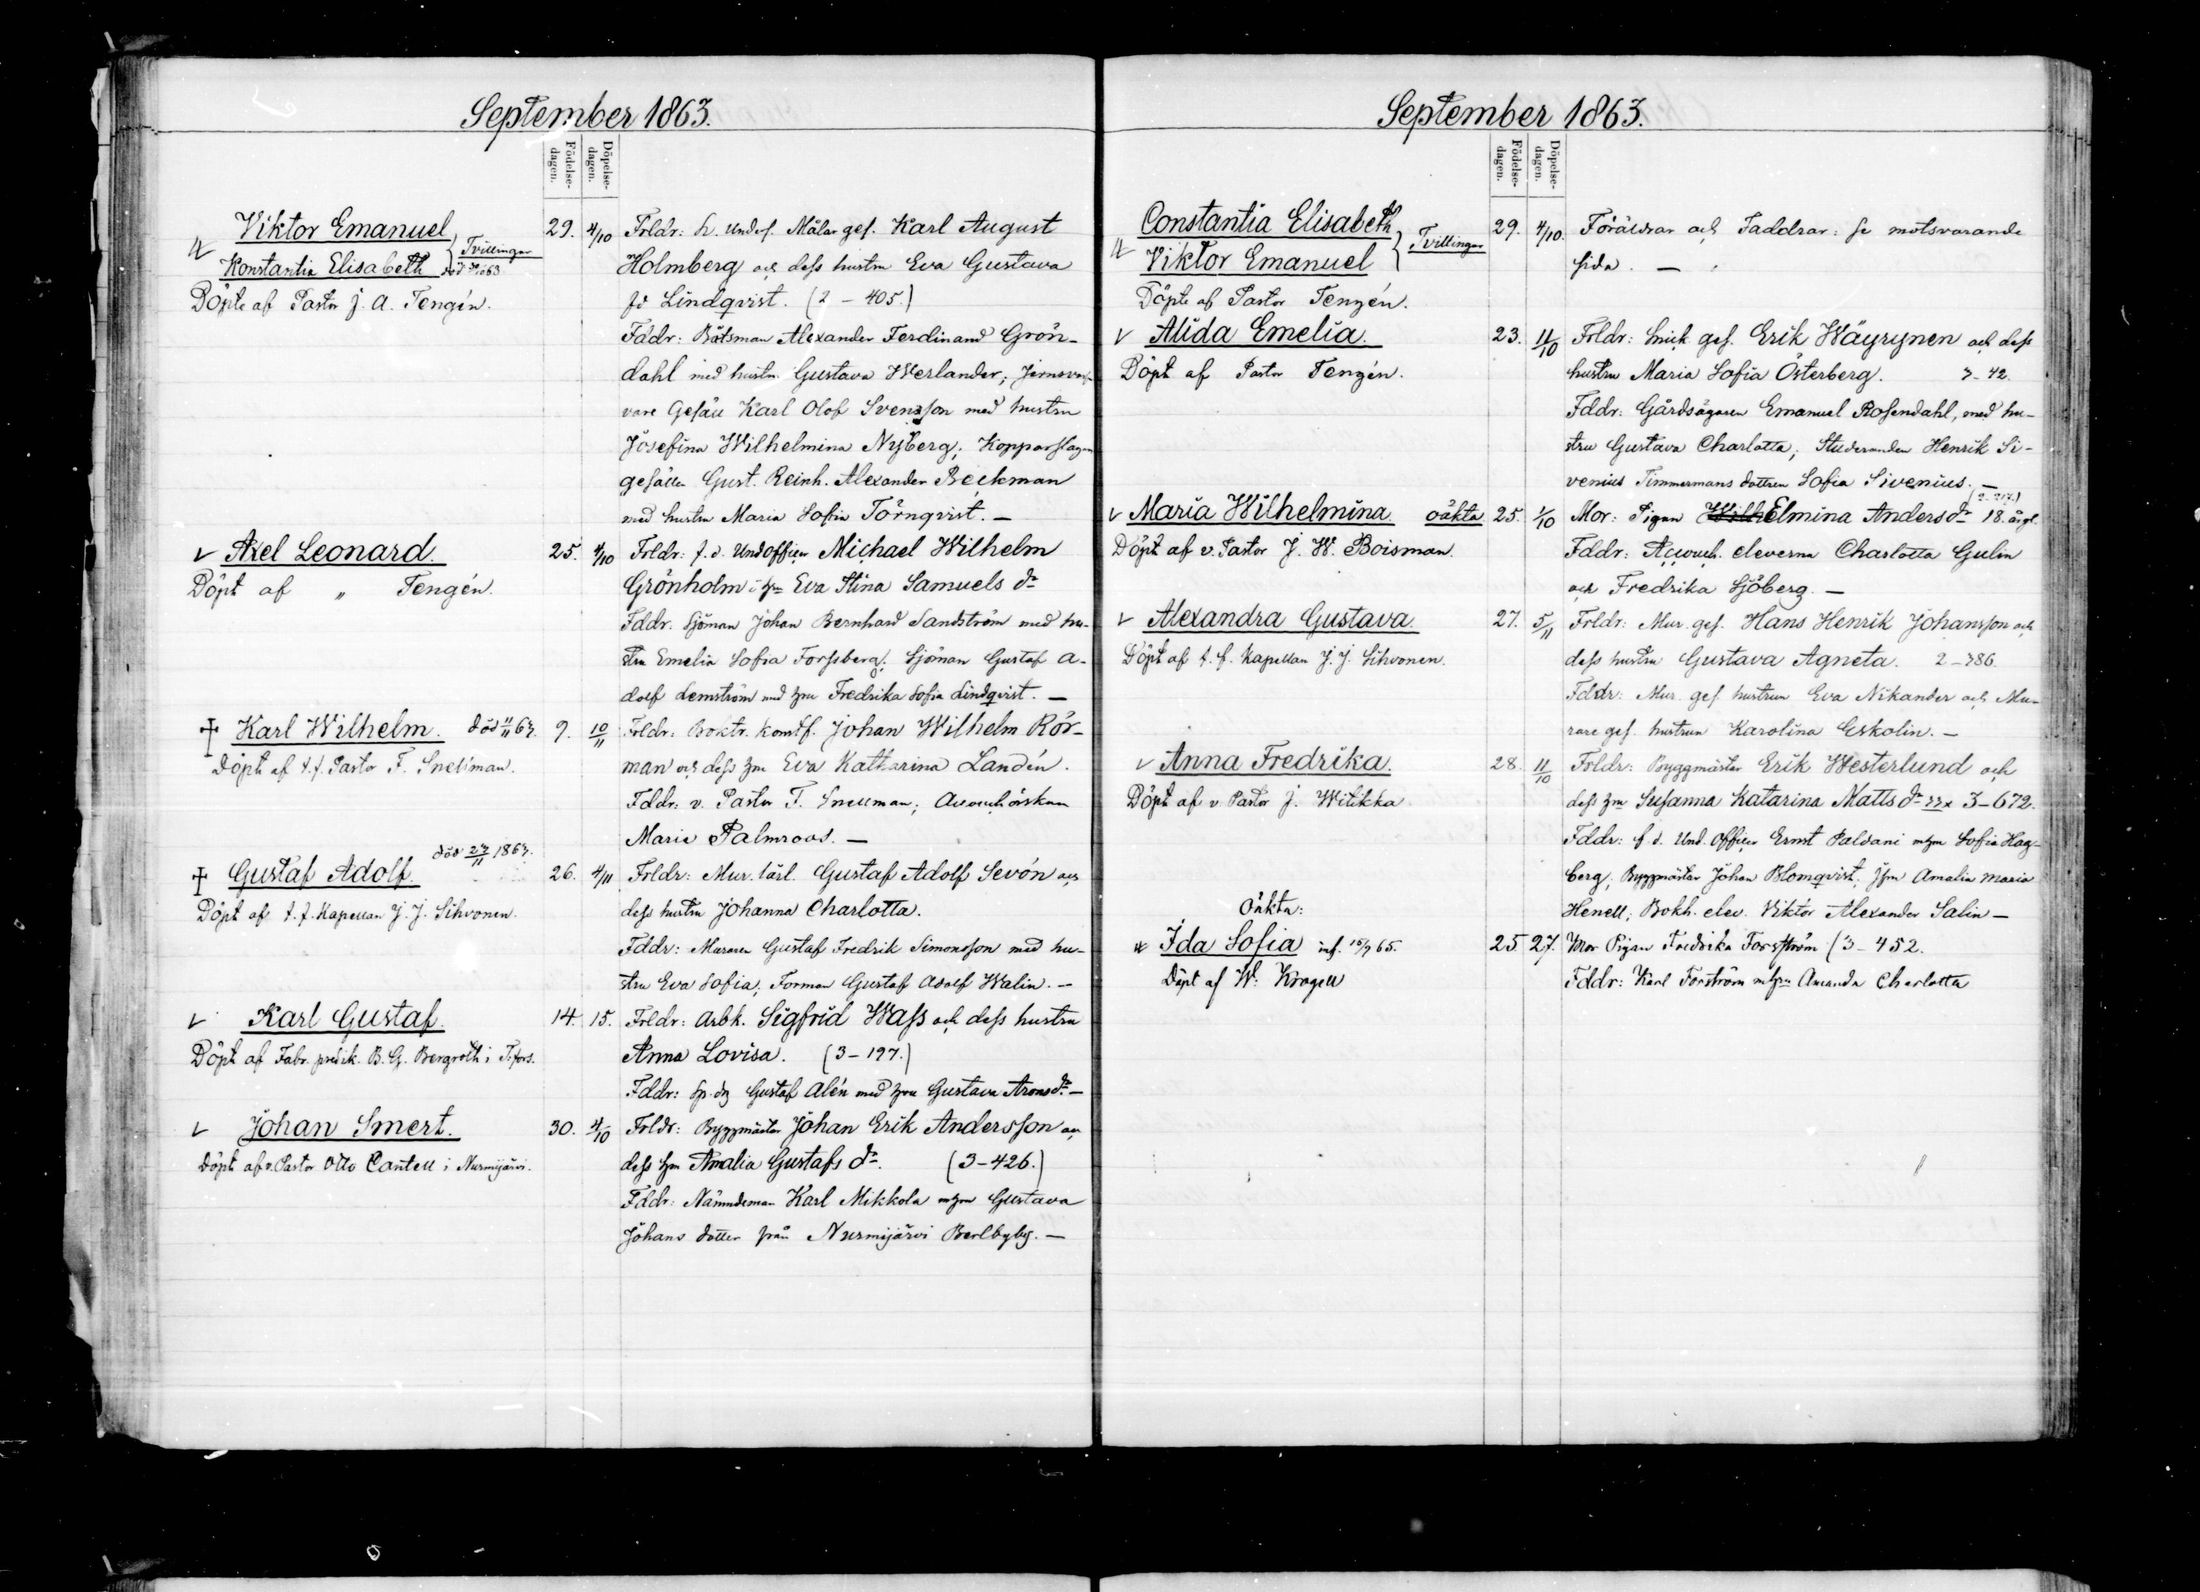 September 1863.
Födelse-dagen.
Döpelse-dagen.
Viktor Emanuel
Konstantia Elisabeth
Tvillingar
Döpte af Pastor J. A. Tengén.
29. 4/10 Frldr: Målar ges. Karl August
Holmberg och dess hustru Eva Gustava
Lindqvist. (2-405.)
Fddr: Båtsman Alexander Ferdinand Grön-
dahl med hustru Gustava Werlander;
vare Gesäll Karl Olof Svensson med hustru
Josefina Wilhelmina Nyberg; Kopparslagare
gesällen Gust. Reinh. Alexander Beckman
med hustru Maria Sofia Törnqvist. —
Axel Leonard.
Döpt af „ Tengén.
25. 4/10 Frldr: f.d. Undofficer Michael Wilhelm
Grönholm o hu Eva Stina Samuels dr
Fddr. Sjöman Johan Bernhard Sandström med hu-
stru Emelia Sofia Forssberg; Sjöman Gustaf A-
dolf Lemström med hu Fredrika Sofia Lindqvist. —
Karl Wilhelm. död 11/11 63.
Döpt af t.f. Pastor F. Snellman.
9. 10/11 Frldr: Boktr. konstf. Johan Wilhelm Rör-
man och dess hu Eva Katharina Landén.
Fddr: v. Pastor F. Snellman;
Maria Palmroos. —
Gustaf Adolf. död 27/11 1863.
Döpt af t.f. Kapellan J. J. Sihvonen.
26. 4/11 Frldr: Mur. lärl. Gustaf Adolf Sevón och
dess hustru Johanna Charlotta.
Fddr: Muraren Gustaf Fredrik Simonsson med hu-
stru Eva Sofia; Forman Gustaf Adolf Walin. —
Karl Gustaf.
Döpt af Fabr. predik. B. G. Bergroth i T:fors.
14. 15. Frldr: Arbk. Sigfrid Wass och dess hustru
Anna Lovisa. (3-197.)
Fddr: Gustaf Alén med hu Gustava Aronsdr. —
Johan Smert.
Döpt af v. Pastor Otto Cantell i Nurmijärvi.
30. 4/10 Frldr: Byggmästar Johan Erik Andersson och
dess hu Amalia Gustafs dr. (3-426.)
Fddr: Nämndeman Karl Mikkola m hu Gustava
Johans dotter från Nurmijärvi —
September 1863.
Födelse-dagen.
Döpelse-dagen.
Constantia Elisabeth
Viktor Emanuel
Tvillingar
Döpte af Pastor Tengén.
29. 4/10. Föräldrar och Faddrar: se motsvarande
sida. —
Alida Emelia.
Döpt af Pastor Tengén.
23. 11/10 Frldr: Snick. ges. Erik Wäyrynen och dess
hustru Maria Sofia Österberg. 3-42.
Fddr: Gårdsägaren Emanuel Rosendahl, med hu-
stru Gustava Charlotta; Studeranden Henrik Si-
venius Timmermans dottren Sofia Sivenius. —
Maria Wilhelmina oäkta
Döpt af v. Pastor J. W. Boisman.
25. 1/10 Mor: Pigan Elmina Anders dr 18. årgl.
Fddr: Accouch. eleverna Charlotta Gulin
och Fredrika Sjöberg. —
Alexandra Gustava
Döpt af t.f. Kapellan J. J. Sihvonen.
27. 5/11 Frldr: Mur. ges. Hans Henrik Johansson och
dess hustru Gustava Agneta. 2-386.
Fddr: Mur. ges hustrun Eva Nikander och Mu-
rare ges. hustrun Karolina Eskolin. —
Anna Fredrika.
Döpt af v. Pastor J. Witikka.
28. 11/10 Frldr: Byggmästar Erik Westerlund och
dess hu Susanna Katarina Matts dr 3-672.
Fddr: f.d. Und. Officer Ernst Paldani m hu Sofia Hag-
berg; Byggmästar Johan Blomqvist; Amalia Maria
Henell; Bokh. elev. Viktor Alexander Salin —
Oäkta:
Ida Sofia
Döpt af W. Krogell
25 27. Mor Pigan Fredrika Forsström (3-452.
Fddr: Karl Forström m hu Amanda Charlotta